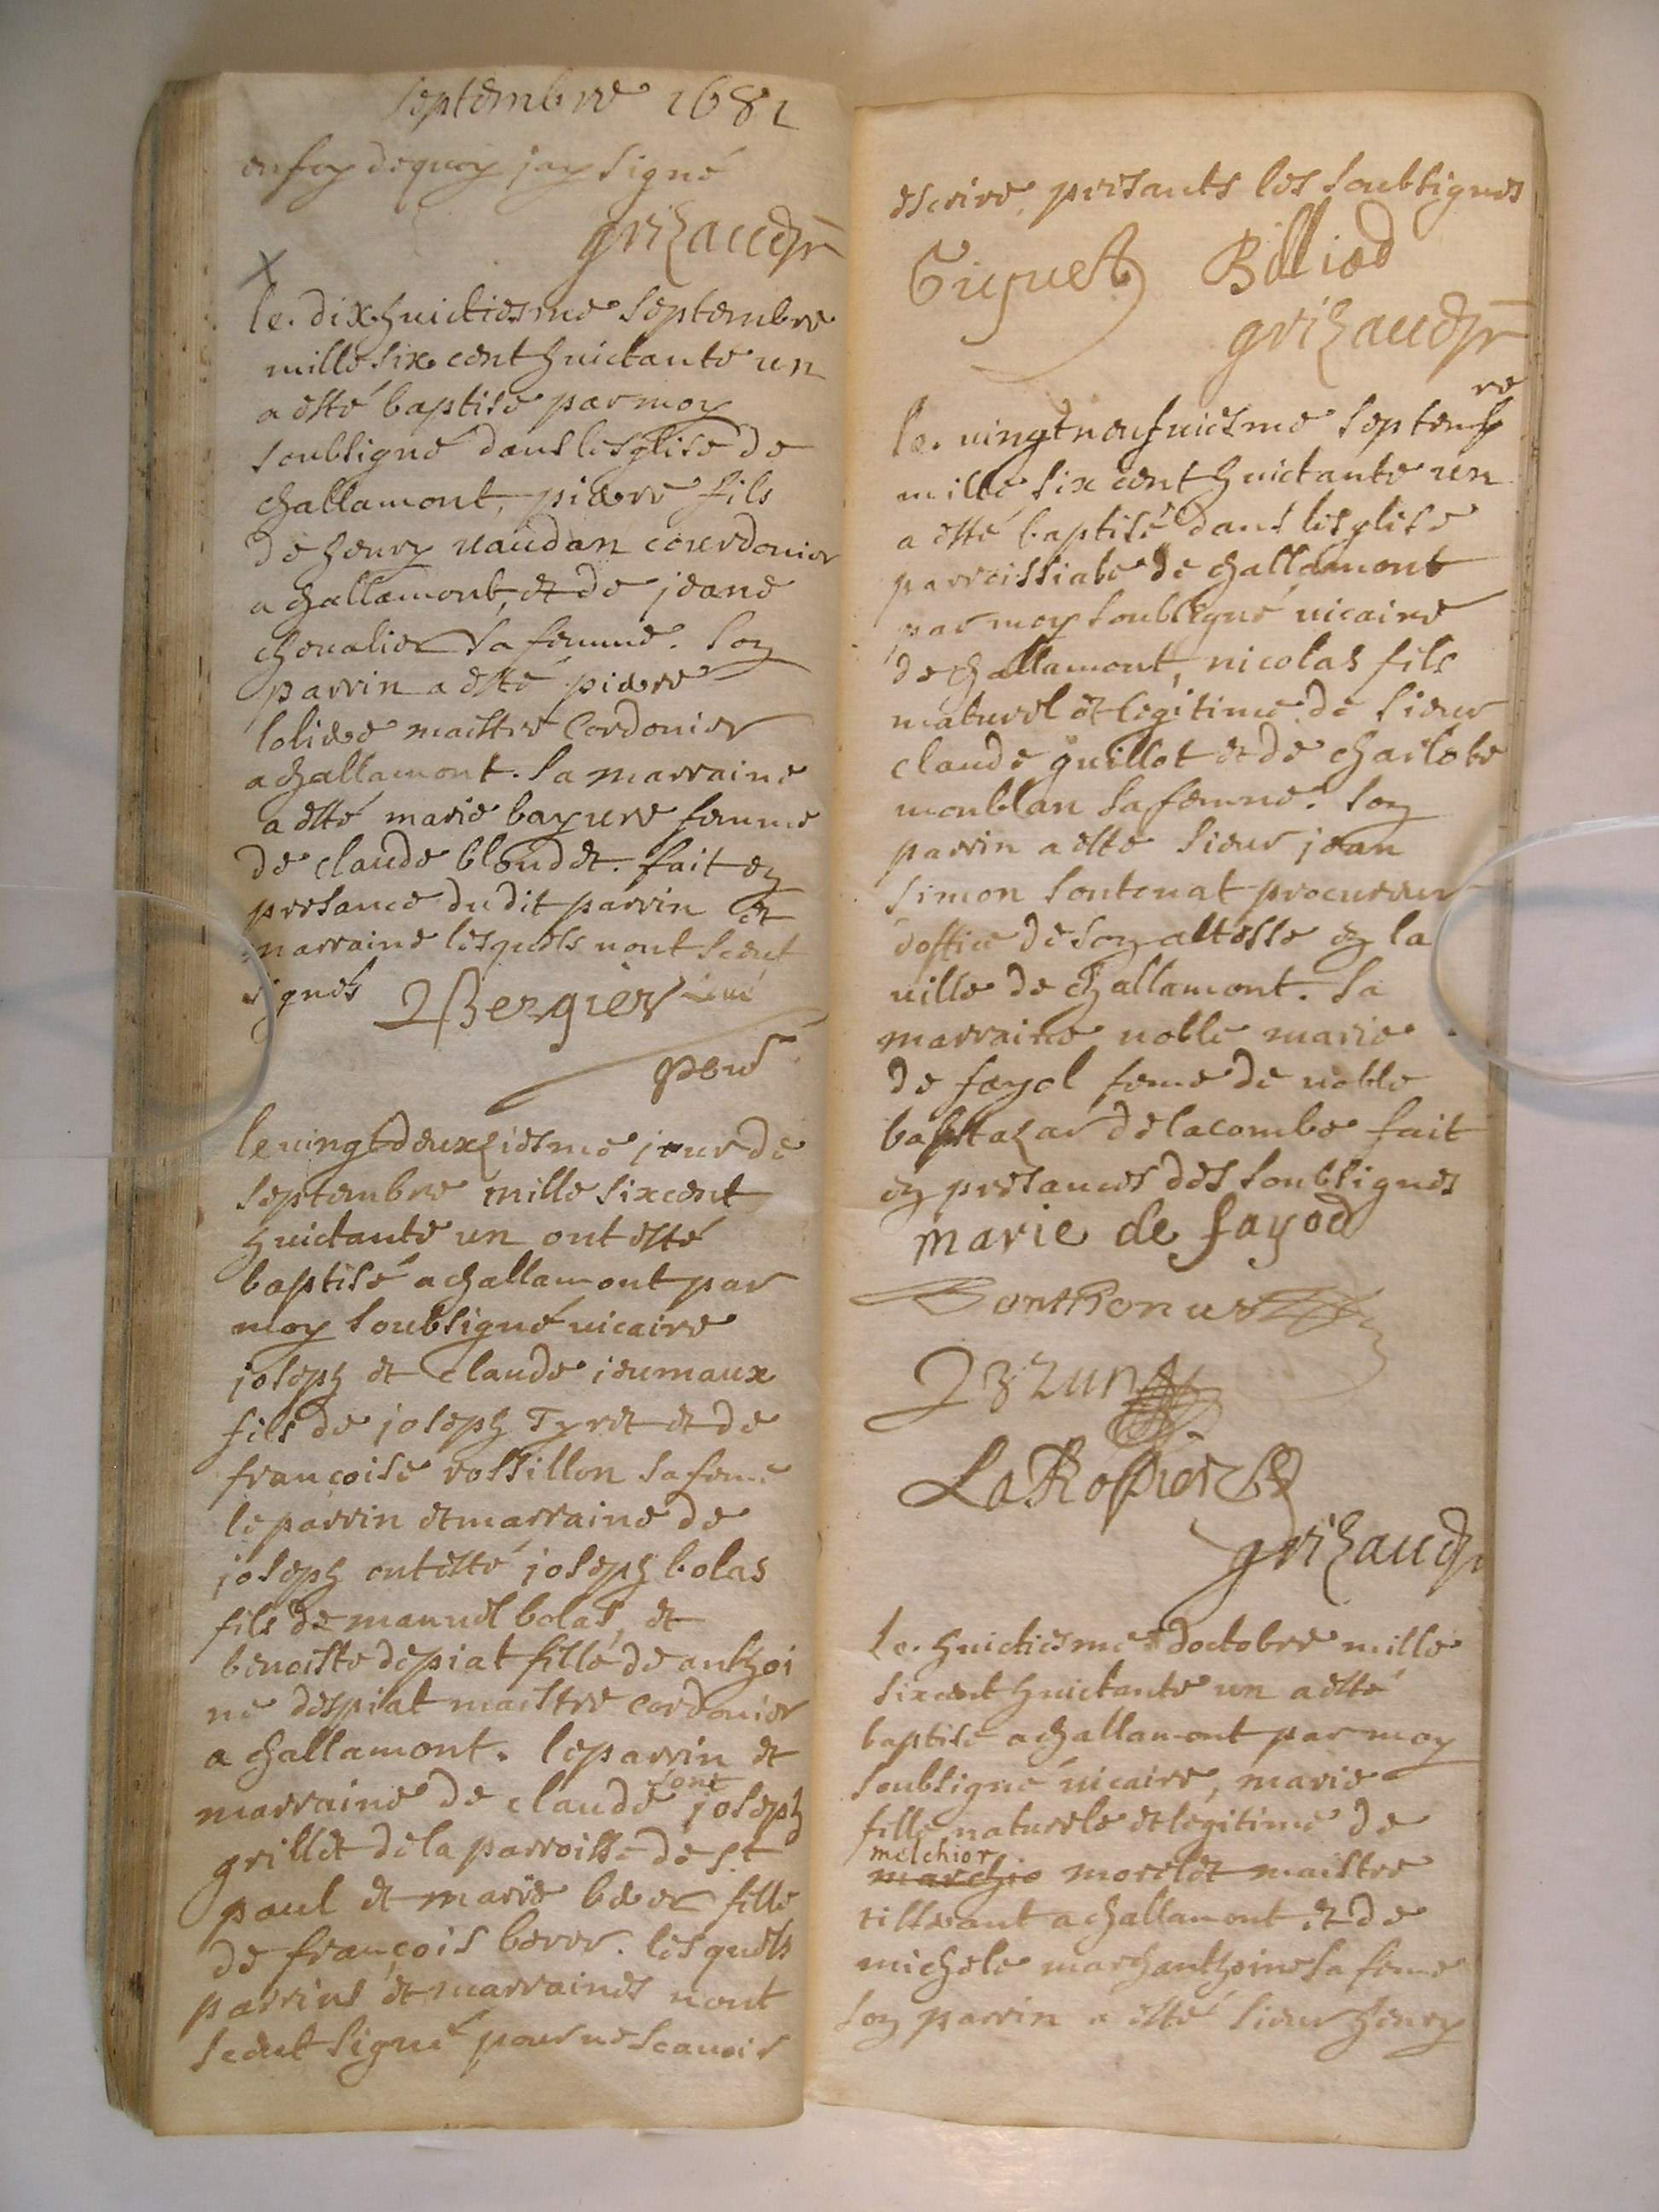 Septembre 1681
en foy dequoy jay signé
grizaud pr
le. dix huictiesme septembre
mille six cent huictante un
a esté baptisé par moy
soubsigné dans lesglise de
challamont, pierre fils
de henry vaudan courdonier
a challamont, et de jeane
chevalier sa femme. son
parrin a esté pierre
loliere maistre Cordonier
a challamont. sa marraine
a esté marie bayure femme
de claude blondet. fait en
presance dudit parrin et
marraine lesquels nont sceut
signés Bergier

le vingt deuxziesme jour de
septembre mille six cent
huictante un ont esté
baptisé a challamont par
moy soubsigné vicaire
joseph et claude jeumaux
fils de joseph Tyret et de
françoise rossillon sa feme
le parrin et marraine de
joseph ont esté joseph bolas
fils de manuel bolas, et
benoiste depiat fille de anthoi
ne despiat maistre cordonier
a challamont. le parrin et
marraine de claude sont joseph
grillet de la parroisse de st
paul et marie berer fille
de françois berer. lesquels
parrins et marraines nont
sceut signé pour ne scavoir
escrire, presants les soubsignes
Guguet Billiod
grizaud pr
le. vingt neufviesme septembre
mille six cent huictante un
a esté baptisé dans lesglise
parroissiale de challamont
par moy soubsigné vicaire
de challamont, nicolas fils
naturel et legitime de sieur
claude guillot et de charlote
monblan sa femme. son
parrin a esté sieur jean
simon sontonat procureur
doffice de son altesse en la
ville de challamont. sa
marraine noble marie
de fayol feme de noble
baptazar de lacombe fait
en presances des soubsignes
marie de fayod
Sonthonas

LaRosiere
grizaud pr
Le. huictiesme doctobre mille
six cent huictante un a esté
baptisé a challamont par moy
soubsigné vicaire, marie
fille naturele et legitime de
melchior
marchio morelet maistre
tisserant a challamont et de
michele marchanthoine sa feme
son parrin a esté sieur henry